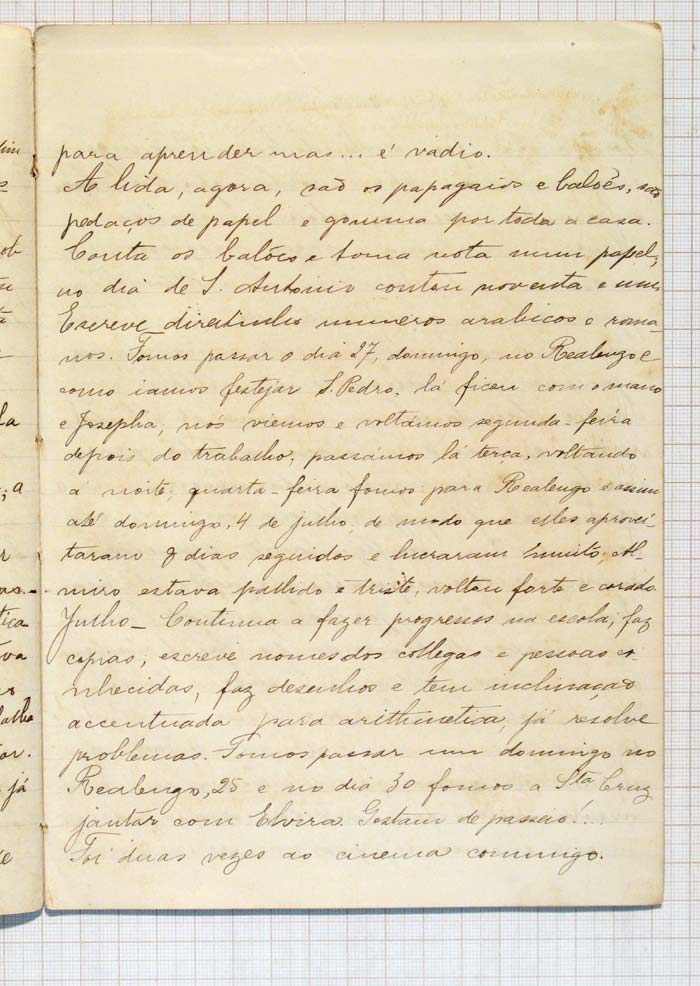 para aprender mas... é vadio.
A lida, agora, são os papagaios e balões, são
pedaços de papel e gomma por toda a casa.
Conta os balões e toma nota num papel,
no dia de S. Antonio contou noventa e um.
Escreve direitinho numeros arabicos e roma-
nos. Fomos passar o dia 27, domingo, no Realengo e
como iamos festejar S. Pedro, lá ficou com o mano
e Josepha; nós viemos e voltámos segunda-feira
depois do trabalho; passámos lá terça, voltando
a noite; quarta-feira fomos para Realengo e assim
até domingo, 4 de julho, de modo que elles aprovei-
taram 8 dias seguidos e lucraram muito; Al-
miro estava pallido e triste, voltou forte e corado.
Julho - Continua a fazer progressos na escola; faz
copias, escreve nomes dos collegas e pessoas co-
nhecidas, faz desenhos e tem inclinação
accentuada para arithmetica, já resolve
problemas. Fomos passar um domingo no
Realengo, 25 e no dia 30 fomos a Sta Cruz
jantar com Elvira. Gostam de passeio!..
Foi duas vezes ao cinema commigo.